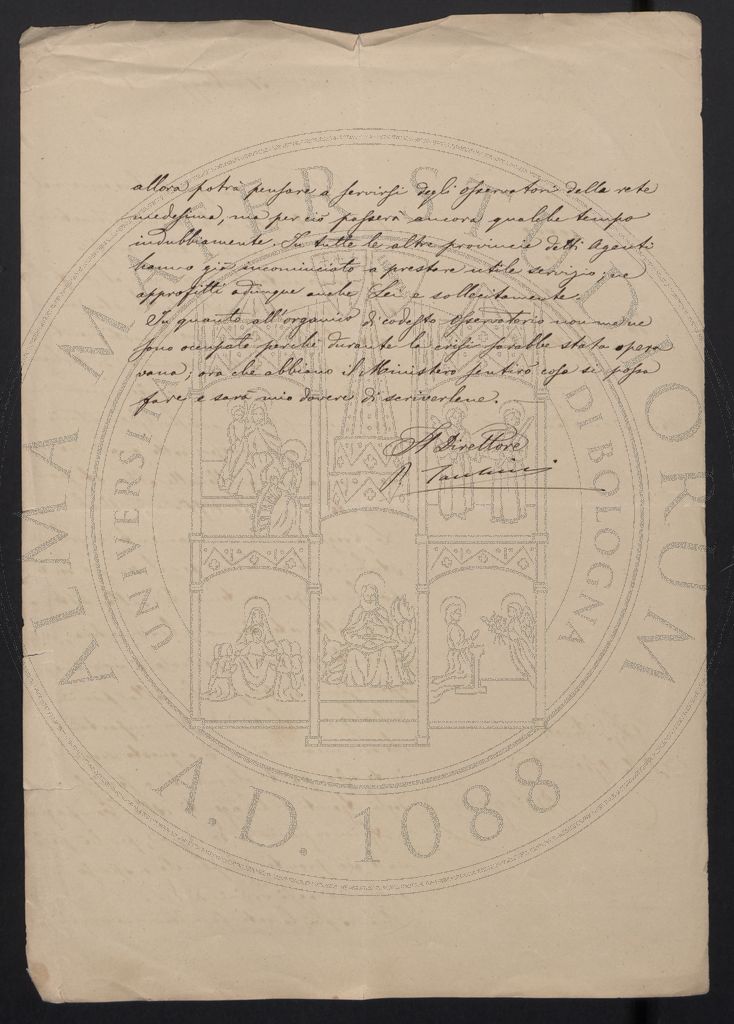 allora potrà pensare a servirsi degli osservatori della rete
medesima, ma per ciò passerà ancora qualche tempo
indubbiamente. In tutte le altre provincie detti Agenti
hanno già incominciato a prestare utile servizio; ne
approfitti adunque anche Lei e sollecitamente.
In quanto all'organico di codesto osservatorio non me ne
sono occupato perchè durante la crisi sarebbe stata opera
vana; ora che abbiamo il Ministero sentirò cosa si possa
fare, e sarà mio dovere di scriverlene.
Il Direttore
P. Tacchini
ALMA MATER STUDIORUM
UNIVERSITÀ DI BOLOGNA
A.D. 1088